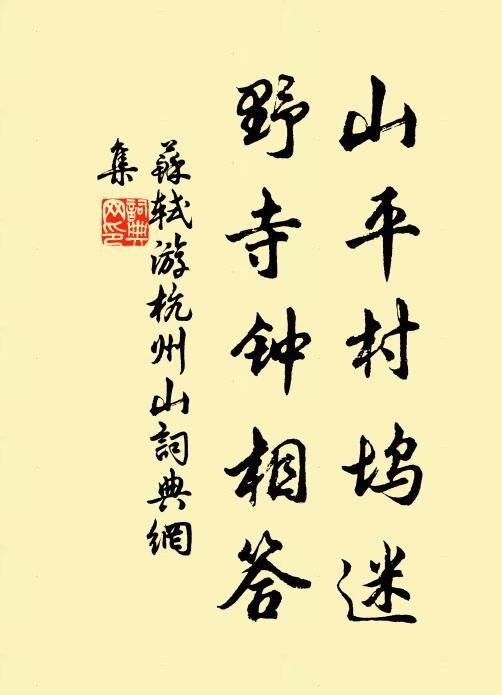 山平村坞迷
野寺钟相答
蘇轼游杭州山詞典網
集
詞典
网印